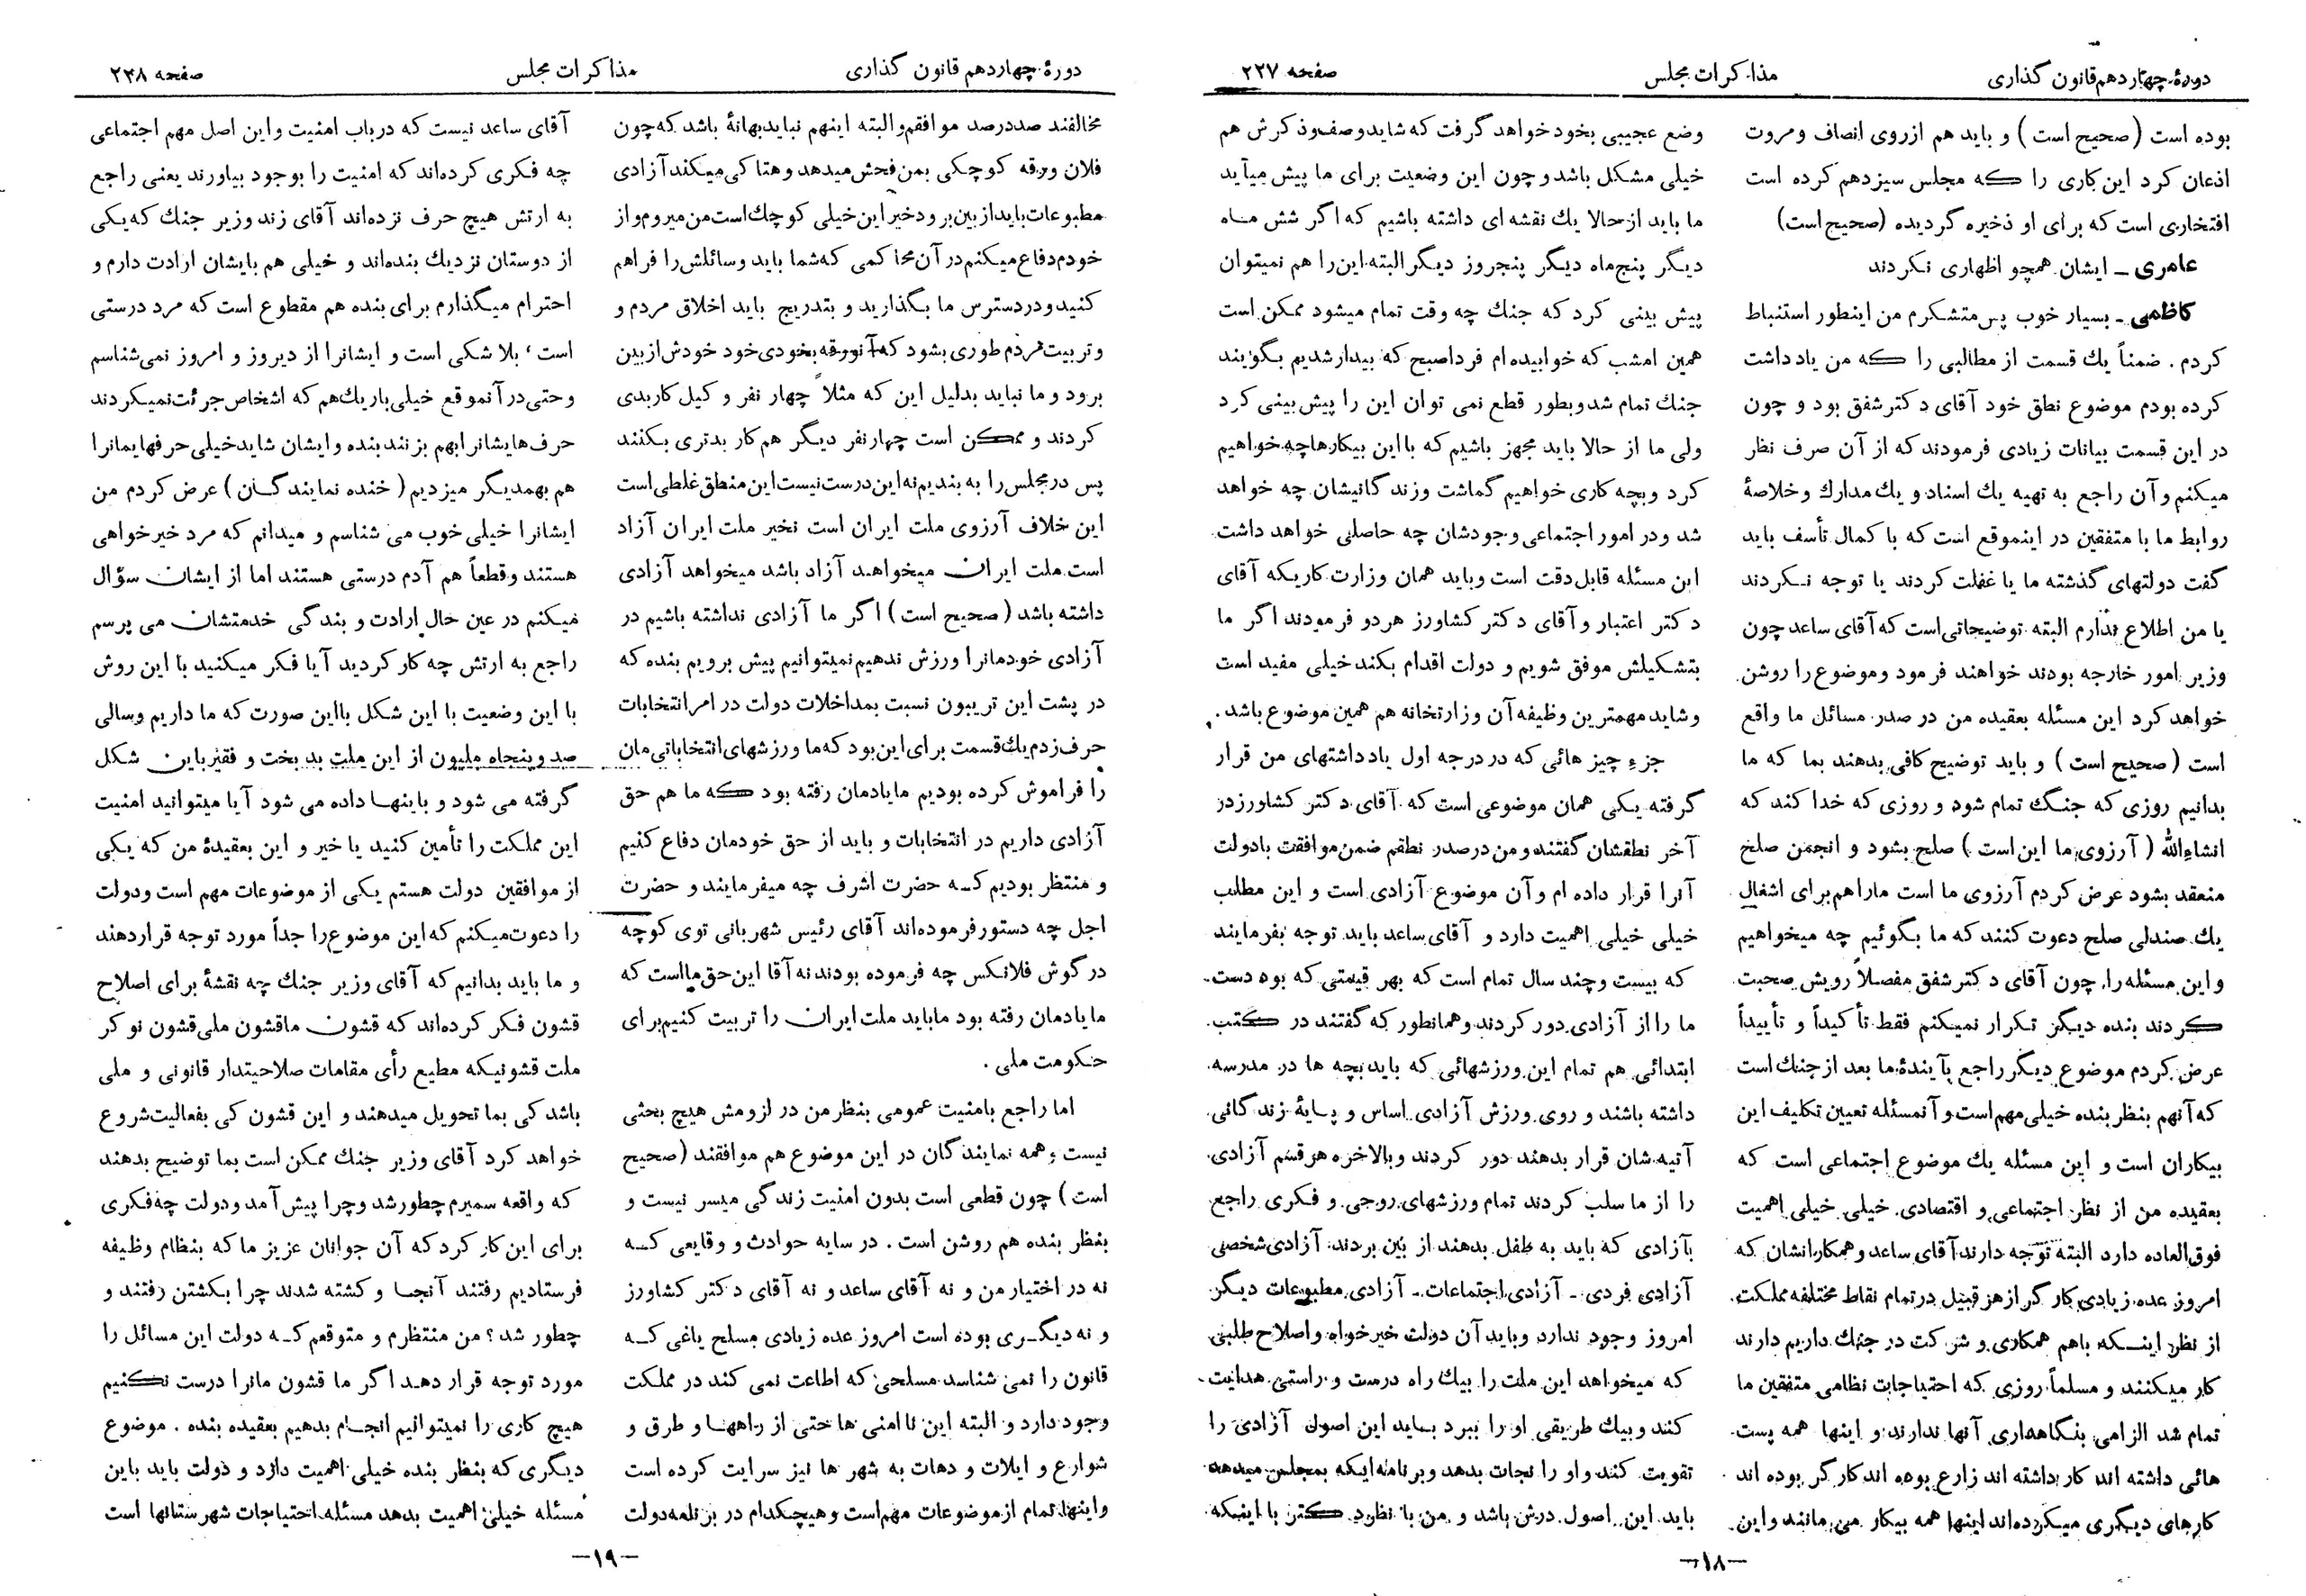 دورهٔ چهاردهم قانون گذاری
مذاکرات مجلس
صفحه ۲۲۷
بوده است (صحیح است) و باید هم ازروی انصاف ومروت
اذعان کرد این کاری را که مجلس سیزدهم کرده است
افتخاری است که برای او ذخیره گردیده (صحیح است)
عامری ـ ایشان همچو اظهاری نکردند
کاظمی ـ بسیار خوب پس متشکرم من اینطور استنباط
کردم . ضمناً یك قسمت از مطالبی را که من یادداشت
کرده بودم موضوع نطق خود آقای دکتر شفق بود و چون
در این قسمت بیانات زیادی فرمودند که از آن صرف نظر
میکنم و آن راجع به تهیه یك اسناد و یك مدارك و خلاصهٔ
روابط ما با متفقین در اینموقع است که با کمال تأسف باید
گفت دولتهای گذشته ما یا غفلت کردند یا توجه نکردند
یا من اطلاع ندارم البته توضیحاتی است که آقای ساعد چون
وزیر امور خارجه بودند خواهند فرمود وموضوع را روشن
خواهد کرد این مسئله بعقیده من در صدر مسائل ما واقع
است (صحیح است) و باید توضیح کافی بدهند بما که ما
بدانیم روزی که جنگ تمام شود و روزی که خدا کند که
انشاءالله (آرزوی ما این است) صلح بشود و انجمن صلح
منعقد بشود عرض کردم آرزوی ما است ماراهم برای اشغال
یك صندلی صلح دعوت کنند که ما بگوئیم چه میخواهیم
و این مسئله را چون آقای دکتر شفق مفصلاً رویش صحبت
کردند بنده دیگر تکرار نمیکنم فقط تأکیداً و تأییداً
عرض کردم موضوع دیگر راجع بآیندهٔ ما بعد از جنك است
که آنهم بنظر بنده خیلی مهم است و آنمسئله تعیین تکلیف این
بیکاران است و این مسئله یك موضوع اجتماعی است که
بعقیده من از نظر اجتماعی و اقتصادی خیلی خیلی اهمیت
فوق العاده دارد البته توجه دارند آقای ساعد و همکارانشان که
امروز عده زیادی کارگر از هر قبیل در تمام نقاط مختلفه مملکت
از نظر اینکه باهم همکاری و شرکت در جنك داریم دارند
کار میکنند و مسلماً روزی که احتیاجات نظامی متفقین ما
تمام شد الزامی بنگاهداری آنها ندارند و اینها همه پست
هائی داشته اند کار داشته اند زارع بوده اند کارگر بوده اند
کارهای دیگری میکرده‌اند اینها همه بیکار می مانند و این
وضع عجیبی بخود خواهد گرفت که شاید وصف وذکرش هم
خیلی مشکل باشد و چون این وضعیت برای ما پیش میآید
ما باید از حالا یك نقشه ای داشته باشیم که اگر شش ماه
دیگر پنج‌ماه دیگر پنجروز دیگر البته این را هم نمیتوان
پیش بینی کرد که جنك چه وقت تمام میشود ممکن است
همین امشب که خوابیده ام فردا صبح که بیدار شدیم بگویند
جنك تمام شد و بطور قطع نمی توان این را پیش بینی کرد
ولی ما از حالا باید مجهز باشیم که با این بیکارها چه خواهیم
کرد و بچه کاری خواهیم گماشت وزندگانیشان چه خواهد
شد و در امور اجتماعی وجودشان چه حاصلی خواهد داشت
این مسئله قابل دقت است وباید همان وزارت کاریکه آقای
دکتر اعتبار و آقای دکتر کشاورز هر دو فرمودند اگر ما
بتشکیلش موفق شویم و دولت اقدام بکند خیلی مفید است
وشاید مهمترین وظیفه آن وزارتخانه هم همین موضوع باشد .
جزء چیز هائی که در درجه اول یادداشتهای من قرار
گرفته یکی همان موضوعی است که آقای دکتر کشاورز در
آخر نطقشان گفتند و من در صدر نطقم ضمن موافقت بادولت
آنرا قرار داده ام و آن موضوع آزادی است و این مطلب
خیلی خیلی اهمیت دارد و آقای ساعد باید توجه بفرمایند
که بیست و چند سال تمام است که بهر قیمتی که بوده دست
ما را از آزادی دور کردند و همانطور که گفتند در کتب
ابتدائی هم تمام این ورزشهائی که باید بچه ها در مدرسه
داشته باشند و روی ورزش آزادی اساس و پایهٔ زندگانی
آتیه شان قرار بدهند دور کردند و بالاخره هر قسم آزادی
را از ما سلب کردند تمام ورزشهای روحی و فکری راجع
بآزادی که باید به طفل بدهند از بین بردند آزادی شخصی
آزادی فردی ـ آزادی اجتماعات ـ آزادی مطبوعات دیگر
امروز وجود ندارد وباید آن دولت خیرخواه و اصلاح طلبی
که میخواهد این ملت را بیك راه درست و راستی هدایت
کند و بیك طریقی او را ببرد باید این اصول آزادی را
تقویت کند و او را نجات بدهد و برنامه ایکه بمجلس میدهد
باید این اصول درش باشد و من با نظر دکتر با اینکه
ـ۱۸ـ
دورهٔ چهاردهم قانون گذاری
مذاکرات مجلس
صفحه ۲۲۸
مخالفند صددرصد موافقم و البته اینهم نباید بهانهٔ باشد که چون
فلان ورقه کوچکی بمن فحش میدهد و هتاکی میکند آزادی
مطبوعات باید از بین برود خیر این خیلی کوچك است من میروم و از
خودم دفاع میکنم در آن محاکمی که شما باید وسائلش را فراهم
کنید و در دسترس ما بگذارید و بتدریج باید اخلاق مردم و
و تربیت مردم طوری بشود که آنورقه بخودی خود خودش از بین
برود و ما نباید بدلیل این که مثلاً چهار نفر و کیل کاربدی
کردند و ممکن است چهار نفر دیگر هم کار بدتری بکنند
پس در مجلس را به بندیم نه این درست نیست این منطق غلطی است
این خلاف آرزوی ملت ایران است نخیر ملت ایران آزاد
است ملت ایران میخواهد آزاد باشد میخواهد آزادی
داشته باشد (صحیح است) اگر ما آزادی نداشته باشیم در
آزادی خودمانرا ورزش ندهیم نمیتوانیم پیش برویم بنده که
در پشت این تریبون نسبت بمداخلات دولت در امر انتخابات
حرف زدم یك قسمت برای این بود که ما ورزشهای انتخاباتی مان
را فراموش کرده بودیم ما یادمان رفته بود که ما هم حق
آزادی داریم در انتخابات و باید از حق خودمان دفاع کنیم
و منتظر بودیم که حضرت اشرف چه میفرمایند و حضرت
اجل چه دستور فرموده‌اند آقای رئیس شهربانی توی کوچه
در گوش فلانکس چه فرموده بودند نه آقا این حق ما است که
ما یادمان رفته بود ما باید ملت ایران را تربیت کنیم برای
حکومت ملی .
اما راجع بامنیت عمومی بنظر من در لزومش هیچ بحثی
نیست و همه نمایندگان در این موضوع هم موافقند (صحیح
است) چون قطعی است بدون امنیت زندگی میسر نیست و
بنظر بنده هم روشن است . در سایه حوادث و وقایعی که
نه در اختیار من و نه آقای ساعد و نه آقای دکتر کشاورز
و نه دیگری بوده است امروز عده زیادی مسلح یاغی که
قانون را نمی شناسد مسلحی که اطاعت نمی کند در مملکت
وجود دارد و البته این نا امنی ها حتی از راهها و طرق و
شوارع و ایلات و دهات به شهر ها نیز سرایت کرده است
و اینها تمام از موضوعات مهم است و هیچکدام در برنامه دولت
آقای ساعد نیست که در باب امنیت واین اصل مهم اجتماعی
چه فکری کرده‌اند که امنیت را بوجود بیاورند یعنی راجع
به ارتش هیچ حرف نزده‌اند آقای زند وزیر جنك که یکی
از دوستان نزدیك بنده‌اند و خیلی هم بایشان ارادت دارم و
احترام میگذارم برای بنده هم مقطوع است که مرد درستی
است ، بلا شکی است و ایشانرا از دیروز و امروز نمی شناسم
و حتی در آنموقع خیلی باریك هم که اشخاص جرئت نمیکردند
حرف‌هایشانرا بهم بزنند بنده و ایشان شاید خیلی حرفهایمانرا
هم بهمدیگر میزدیم (خنده نمایندگان) عرض کردم من
ایشانرا خیلی خوب می شناسم و میدانم که مرد خیرخواهی
هستند و قطعاً هم آدم درستی هستند اما از ایشان سؤال
میکنم در عین حال ارادت و بندگی خدمتشان می پرسم
راجع به ارتش چه کار کردید آیا فکر میکنید با این روش
با این وضعیت با این شکل بااین صورت که ما داریم وسالی
صد و پنجاه ملیون از این ملت بد بخت و فقیر باین شکل
گرفته می شود و باینها داده می شود آیا میتوانید امنیت
این مملکت را تأمین کنید یا خیر و این بعقیدهٔ من که یکی
از موافقین دولت هستم یکی از موضوعات مهم است ودولت
را دعوت میکنم که این موضوع را جداً مورد توجه قراردهند
و ما باید بدانیم که آقای وزیر جنك چه نقشهٔ برای اصلاح
قشون فکر کرده‌اند که قشون ما قشون ملی قشون نوکر
ملت قشونیکه مطیع رأی مقامات صلاحیتدار قانونی و ملی
باشد کی بما تحویل میدهند و این قشون کی بفعالیت شروع
خواهد کرد آقای وزیر جنك ممکن است بما توضیح بدهند
که واقعه سمیرم چطور شد و چرا پیش آمد و دولت چه فکری
برای این کار کرد که آن جوانان عزیز ما که بنظام وظیفه
فرستادیم رفتند آنجا و کشته شدند چرا بکشتن رفتند و
چطور شد ؟ من منتظرم و متوقعم که دولت این مسائل را
مورد توجه قرار دهد اگر ما قشون مانرا درست نکنیم
هیچ کاری را نمیتوانیم انجام بدهیم بعقیده بنده . موضوع
دیگری که بنظر بنده خیلی اهمیت دارد و دولت باید باین
مسئله خیلی اهمیت بدهد مسئله احتیاجات شهرستانها است
ـ۱۹ـ